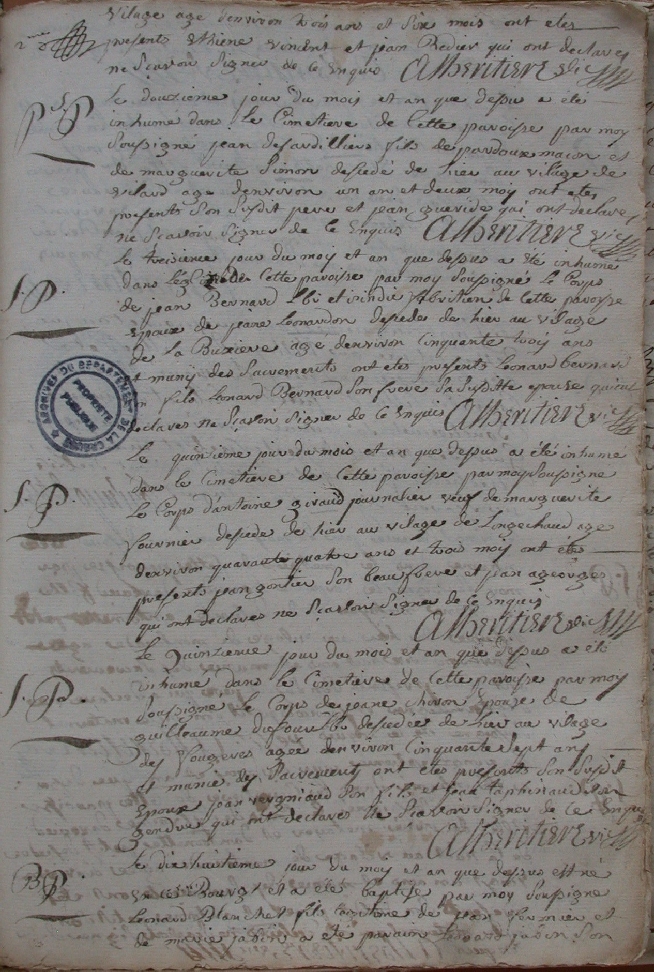 vilage age denviron trois ans et six mois ont etes
presents Etiene vincent et jean Redier qui ont declares
ne scavoir signer de ce Enquis alheritiere vic
Le douzieme jour du mois et an que dessu a été
inhume dans le Cimetiere de Cette paroisse par moy
soussigne jean desardilliers fils de pardoux macon et
de marguerite Simon decedé de hier au vilage de
vilard age denviron un an et deux moy ont etes
presents son susdit pere et jean qui ont declare
ne scavoir signer de ce Enquis alheritiere vic
Le treisieme jour du moy et an que dessus a été inhume
dans Cette paroisse par moy soussigné Le Corps
de jean Bernard de Cette paroisse
Epoux de jeane Leonardon decede de hier au vilage
de La Buxiere age denviron Cinquante trois ans
et munis des Sacrements ont etes presents Leonard bernard
son fils Lenard Bernard son frere sa susditte epouse qui ont
declares ne scavoir signer de ce Enquis alheritiere vic
Le quinzieme jour du mois et an que dessus a été inhume
dans le Cimetiere de Cette paroisse par moy soussigne
Le Corps d'antoine giraud journalier veuf de marguerite
fournier decede de hier au vilage de Longechaud age
denviron quarante quatre ans et trois moy ont étés
presents jean gontier son beau frere et jean ageorges
qui ont declares ne scavoir signer de ce Enquis
alheritiere vic
Le quinzieme jour du mois et an que dessus a été
inhume dans le Cimetiere de Cette paroisse par moy
soussigné le Corps de jeane Epouse de
guilleaume decedee de hier au vilage
des fougeres agee denviron Cinquante sept ans
et munie des Sacrements ont etes presents son susdit
Epoux jean vergniaud son fils et son
gendre qui ont declares ne scavoir signer de ce Enquis
alheritiere vic
Le dix huitieme jour du moy et an que dessus est né
en ce Bourg et a ete baptise par moy soussigne
Leonard Blanchet fils de jean et
de marie jabin a ete parain Leonard jabin son
2me
S P
S. P.
S. P.
S. P.
B P
ARCHIVES DU DEPARTEMENT DE LA CREUSE
PROPRIETE
PUBLIQUE